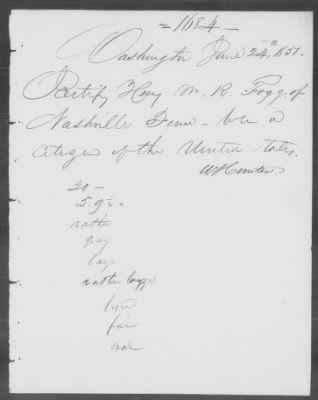 = 1684 =
Washington June 24th, 1851.
I certify Heny M. R. Fogg, of
Nashville Tenn - be a
citizen of the United States.
W Hunter
20 -
5. 9 1/2 -
rather
gray
large
rather large
fair
oval